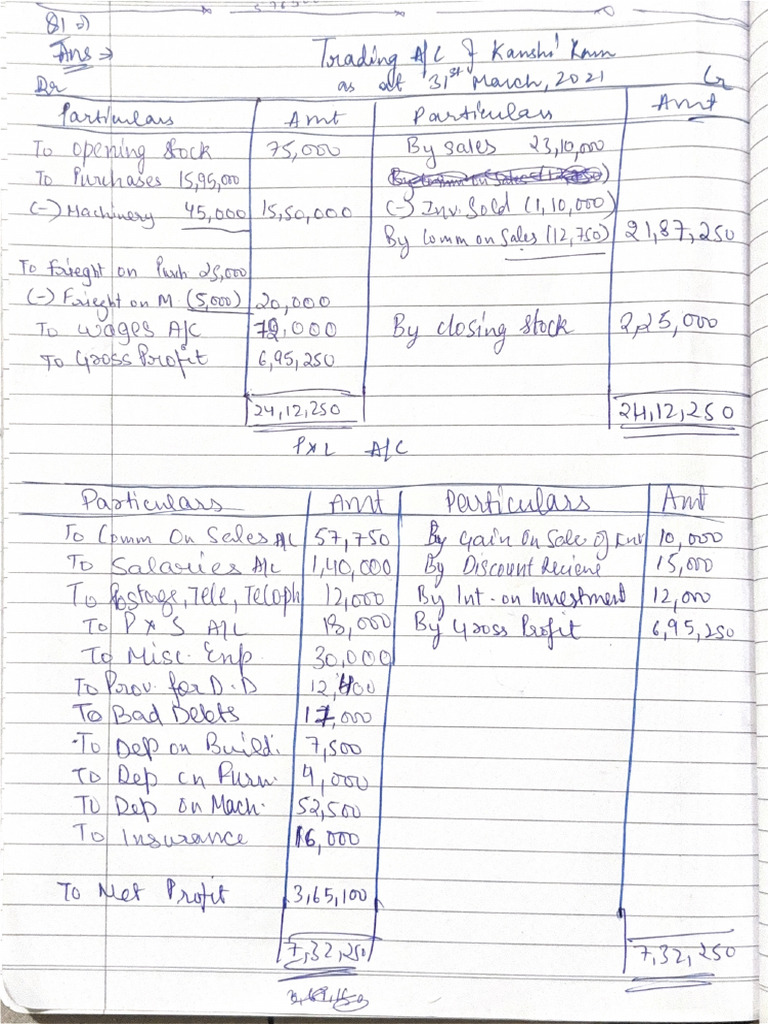 81 2)
Ans ⇒ Trading A/C of Kanshi Ram
Dr as at 31st March, 2021 Cr
Particulars Amt Particulars Amt
To Opening Stock 75,000 By Sales 23,10,000
To Purchases 15,95,000
(-) Machinery 45,000 15,50,000 (-) Inv. Sold (1,10,000)
By Comm on Sales (12,750) 21,87,250
To Frieght on Purch 25,000
(-) Frieght on M. (5,000) 20,000
To Wages A/C 72,000 By Closing Stock 2,25,000
To Gross Profit 6,95,250
24,12,250 24,12,250
P & L A/C
Particulars Amt Particulars Amt
To Comm On Sales A/C 57,750 By Gain On Sale of Inv 10,000
To Salaries A/C 1,40,000 By Discount Recieve 15,000
To Postage, Tele, Teleph 12,000 By Int. on Investment 12,000
To P & S A/C 18,000 By Gross Profit 6,95,250
To Misc. Exp. 30,000
To Prov. for D.D 12,400
To Bad Debts 17,000
To Dep on Buildi. 7,500
To Dep on Furn. 4,000
To Dep on Mach. 52,500
To Insurance 16,000
To Net Profit 3,65,100
7,32,250 7,32,250